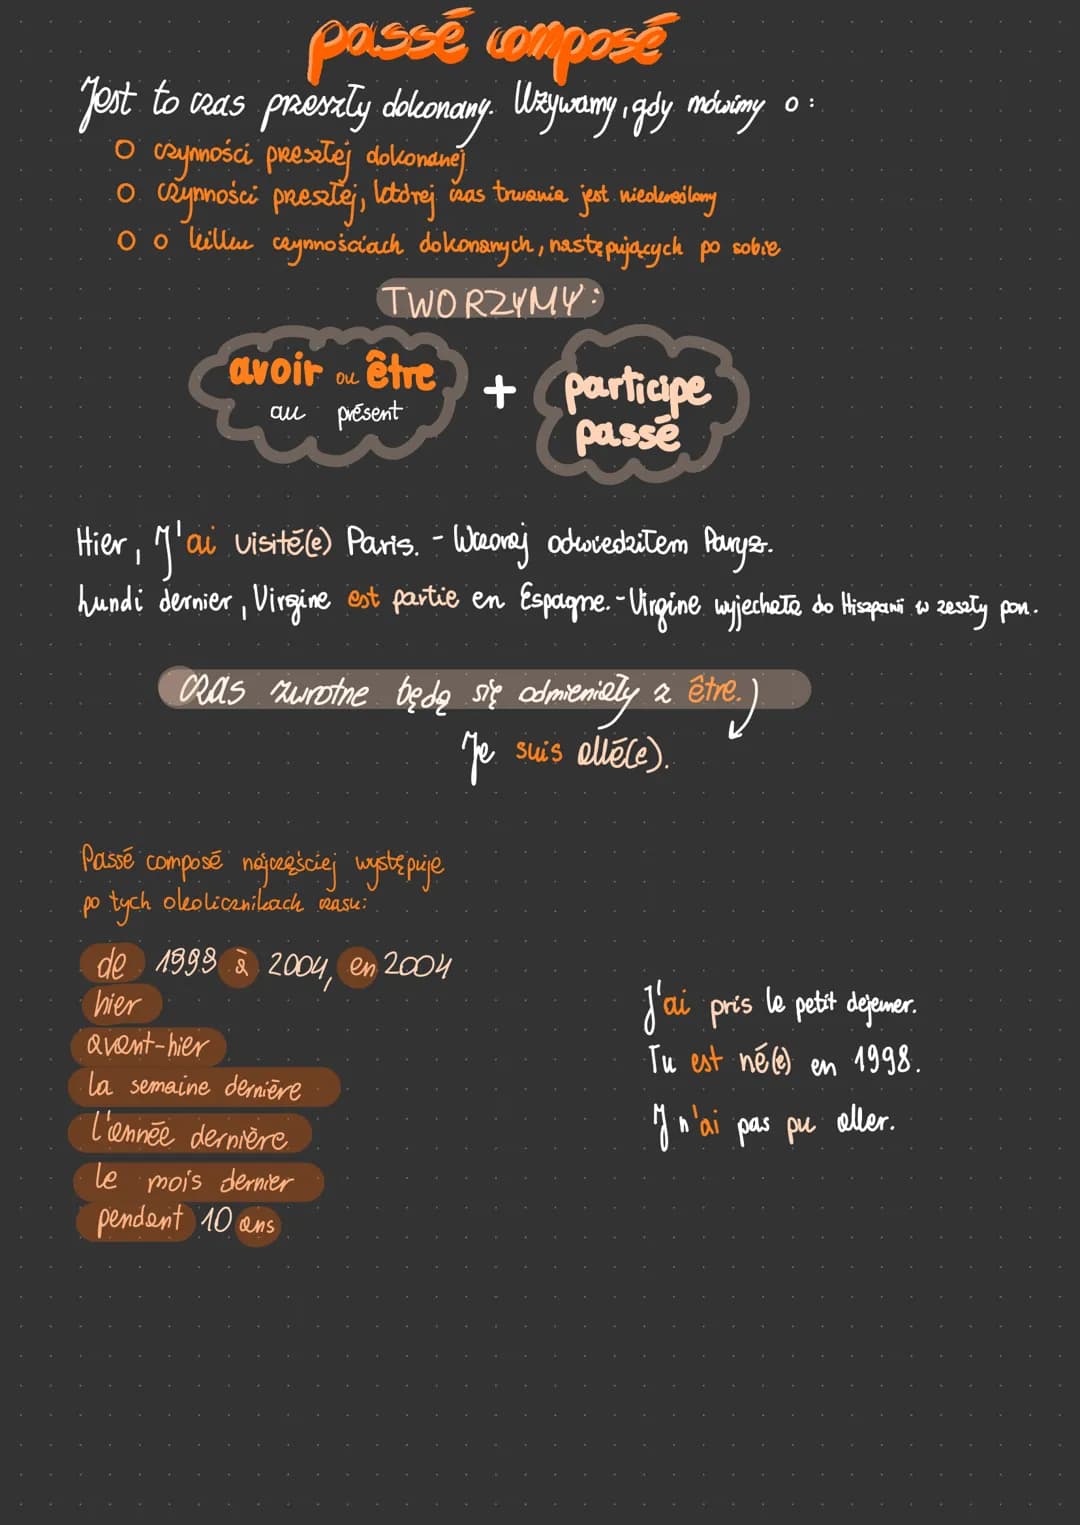 passé composé
Jest to czas przeszły dokonany. Używamy, gdy mówimy o :
czynności przeszłej dokonanej
czynności przeszłej, której czas trwania jest nieokreślony
o kilku czynnościach dokonanych, następujących po sobie
TWORZYMY:
avoir ou être + participe
au présent passé
Hier, J'ai visité(e) Paris. - Wczoraj odwiedziłem Paryż.
Lundi dernier, Virgine est partie en Espagne. - Virgine wyjechała do Hiszpanii w zeszły pon.
czas zwrotne będą się odmieniały z être.
Je suis allé(e).
Passé composé najczęściej występuje
po tych okolicznikach czasu:
de 1998 à 2004, en 2004
hier
avant-hier
la semaine dernière
l'année dernière
le mois dernier
pendant 10 ans
J'ai pris le petit dejemer.
Tu est né(e) en 1998.
J n'ai pas pu aller.